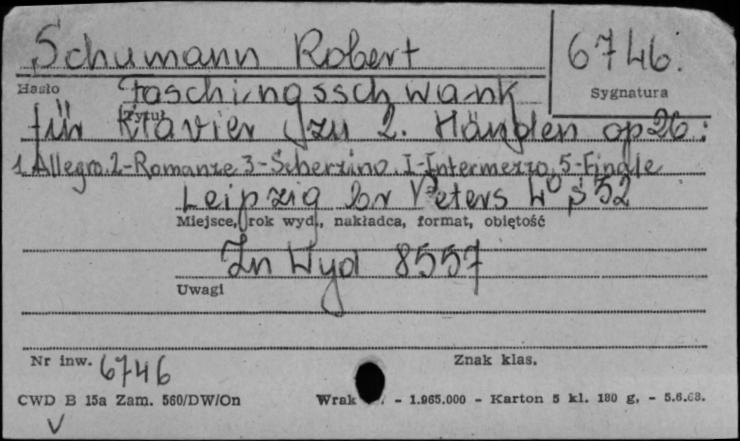 Schumann Robert 6746.
Hasło Faschingsschwank Sygnatura
Tytuł
für Klavier zu 2. Händen op 26:
1 Allegro. 2-Romanze 3-Scherzino. I-Intermezzo, 5-Finale
Leipzig br Peters 4° s 52
Miejsce, rok wyd., nakładca, format, objętość
Zn Wyd 8557
Uwagi
Nr inw. 6746 Znak klas.
CWD B 15a Zam. 560/DW/On Wrak - 1.965.000 - Karton 5 kl. 180 g, - 5.6.68.
V